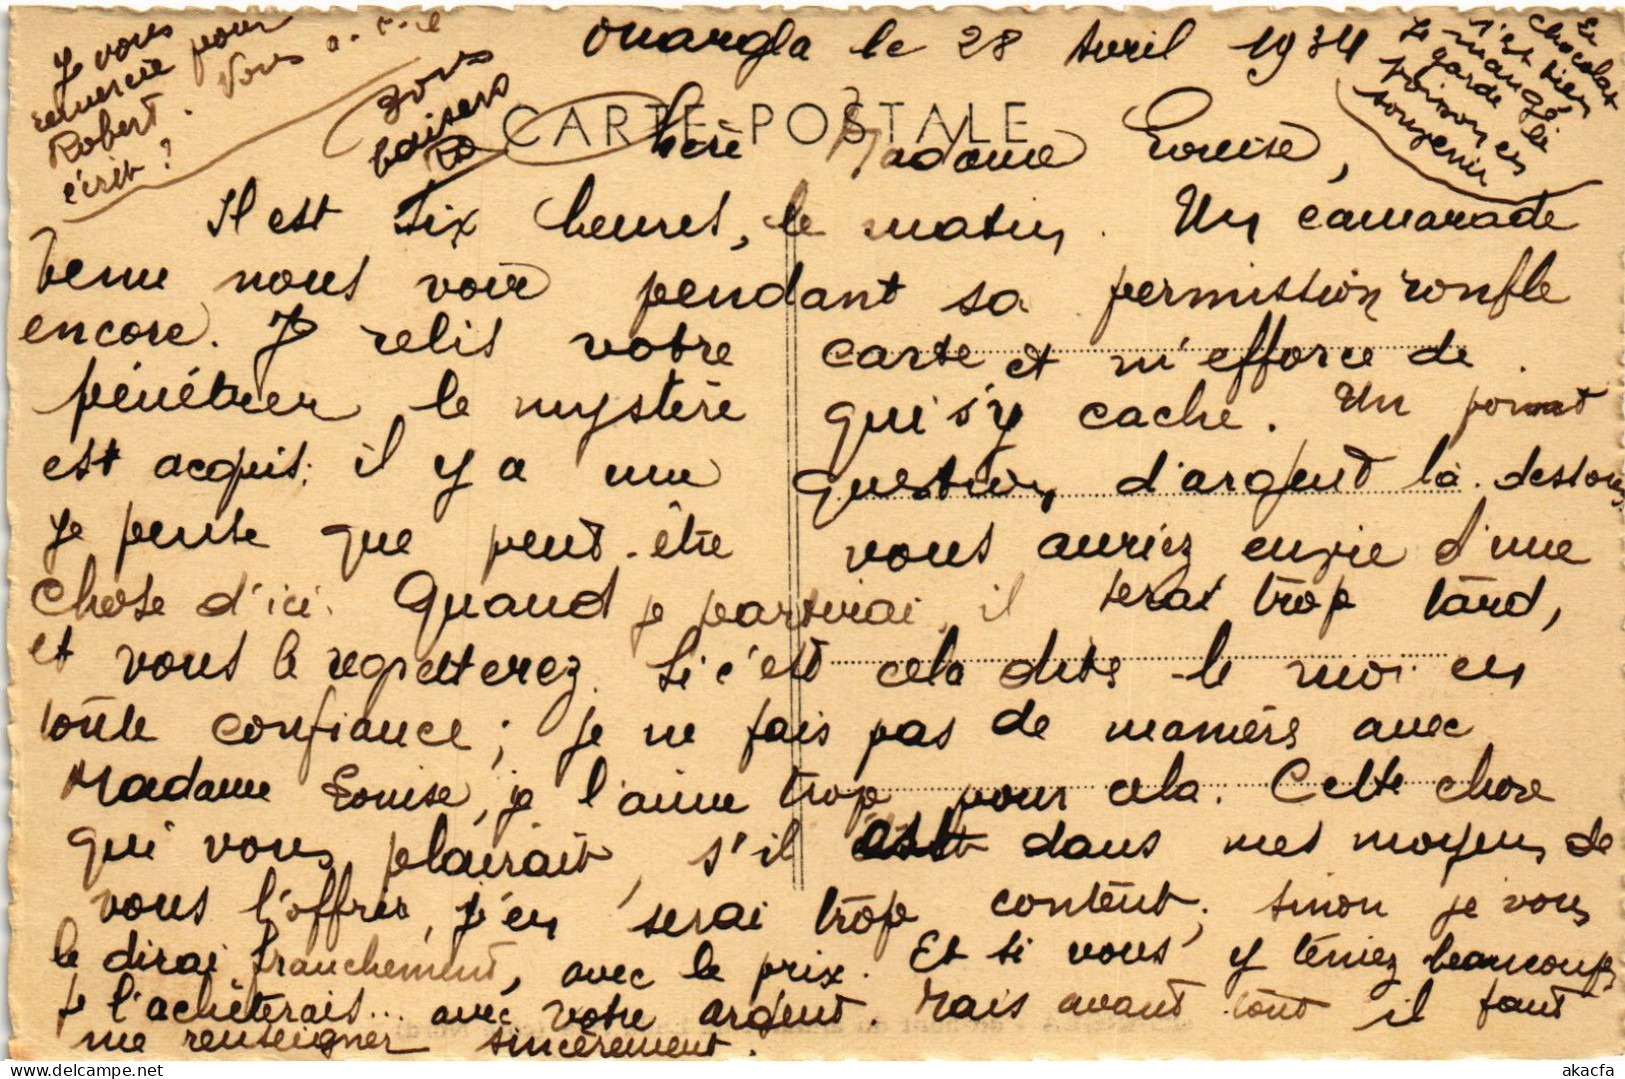 Ouargla le 28 Avril 1934
CARTE POSTALE
Chère Madame Louise,
Il est six heures, le matin. Un camarade
venu nous voir pendant sa permission ronfle
encore. Je relis votre carte et m'efforce de
pénétrer le mystère qui s'y cache. Un point
est acquis: il y a une question d'argent là-dessous
Je pense que peut-être vous auriez envie d'une
chose d'ici. Quand je partirai, il serait trop tard,
et vous le regretterez. Si c'est cela dites-le moi en
toute confiance; je ne fais pas de manières avec
Madame Louise, je l'aime trop pour cela. Cette chose
qui vous plairait, s'il est dans mes moyens de
vous l'offrir, j'en serai trop content; sinon je vous
le dirai franchement, avec le prix. Et si vous y teniez beaucoup
je l'achèterais... avec votre argent. Mais avant tout il faut
me renseigner sincèrement.
Je vous
remercie pour
Robert. Vous a
écrit?
Bons
baisers
Ro
En
chocolat
n'est rien
Je mangé
garde le
poisson en
souvenir
akacfa